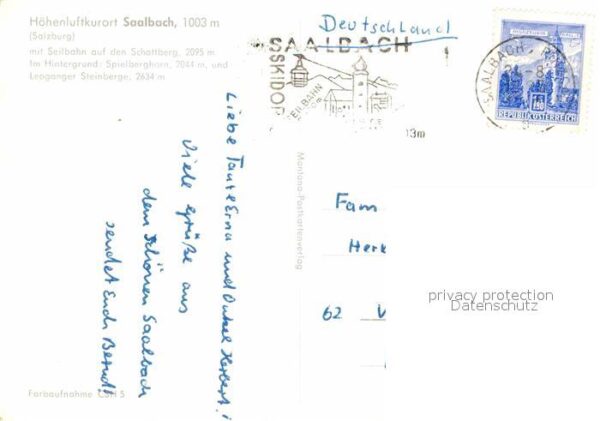 Höhenluftkurort Saalbach, 1003 m
(Salzburg)
mit Seilbahn auf den Schattberg, 2095 m
Im Hintergrund: Spielberghorn, 2044 m, und
Leoganger Steinberge, 2634 m
Deutschland
SAALBACH
SSKIDOR
ER-BAHN
03m
SAALBACH
REPUBLIK ÖSTERREICH
Liebe Tante Erna und Onkel Herbert!
Viele Grüße aus
dem schönen Saalbach
sendet Euch Berndt
Montana-Postkartenverlag
Fam
Herk
62
privacy protection
Datenschutz
Farbaufnahme